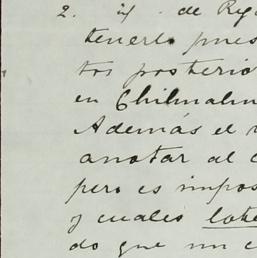 2. if . de Reg
tenerlo pues
tos posterio
en Chilmalun
Además el
anotar al c
pero es impos
y cuales lote
do que un c